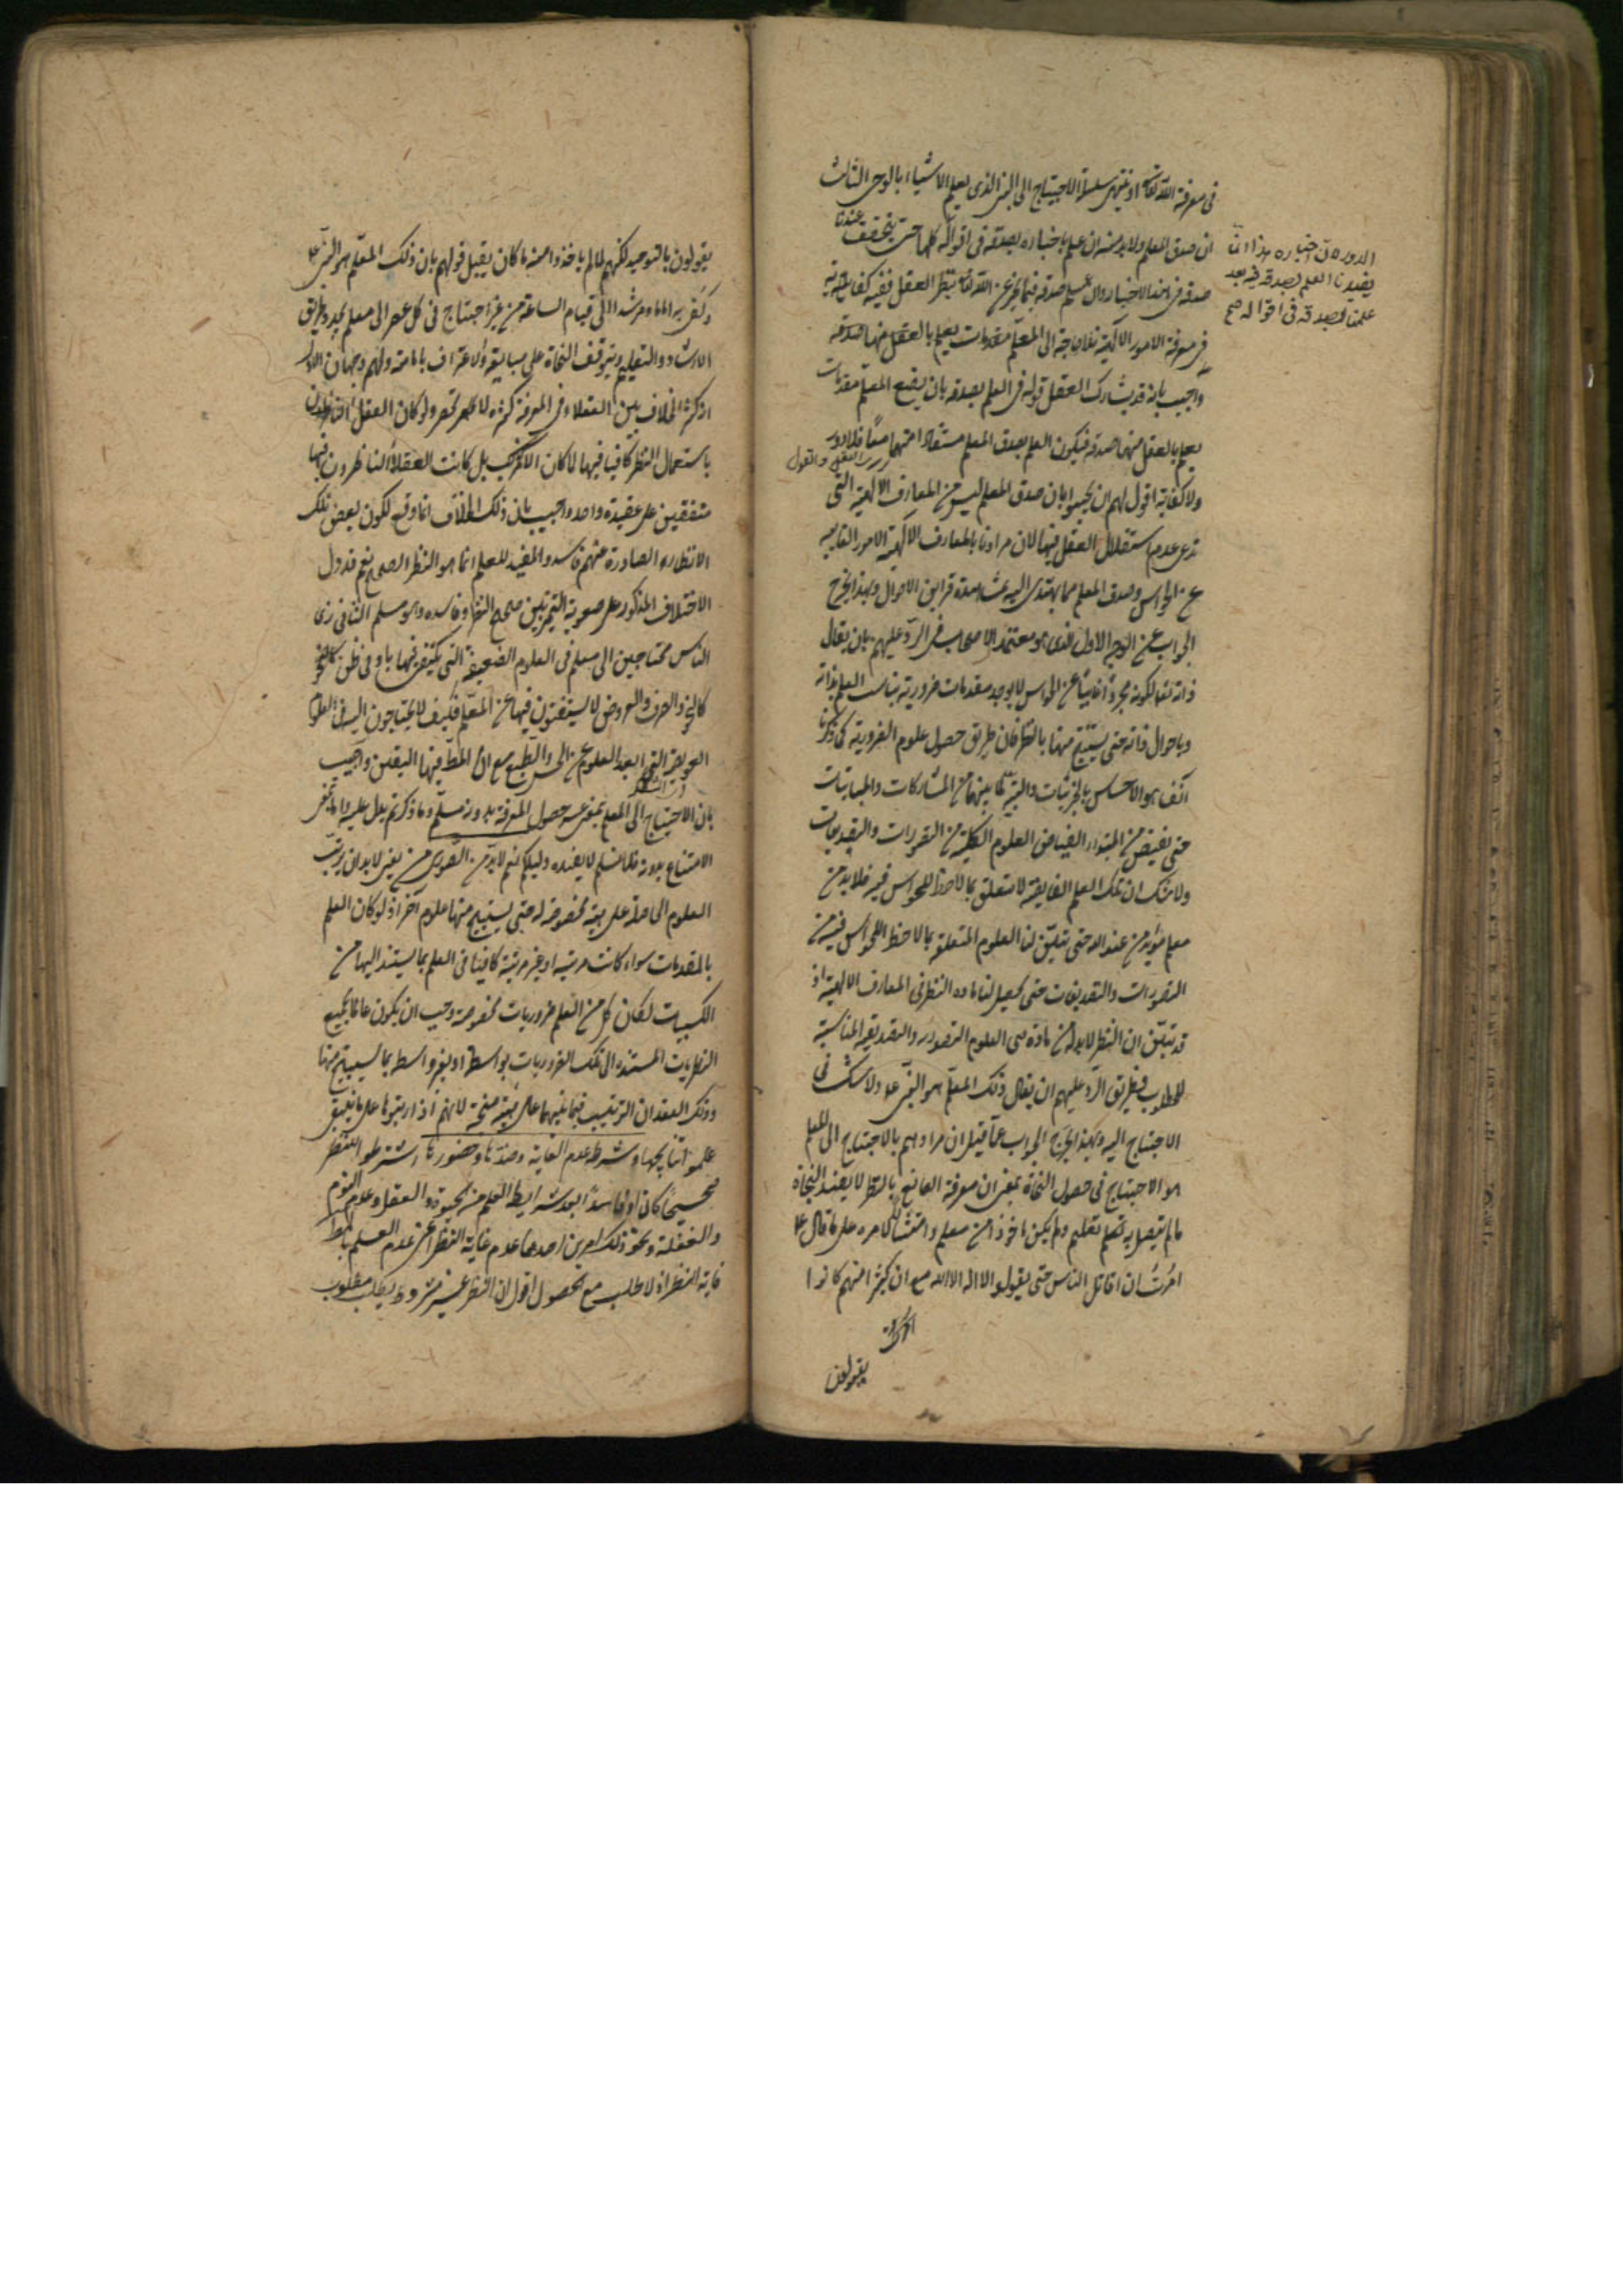 في معرفة الله تعالى او ينتهي سلسلة الاحتياج الى النبي الذي يعلم الاشياء بالوحي الثالث
ان صدق المعلم ولابد منه ان علم باخباره بصدقه في اقواله كلها حتى يتحقق عندنا
صدقه في هذا الاخبار وان علم صدقه فيما يخبر عن الله تعالى بنظر العقل ففيه كفاية
في معرفة الامور الالهية فلا حاجة الى المعلم مقدمات يعلم بالعقل منها صدقه
واجيب بانه قد يشارك العقل قوله في العلم بصدقه بان يضع المعلم مقدمات
يعلم بالعقل منها صدقه فيكون العلم بصدق المعلم مستفادا منهما معا فلا دور
العقل والقول
ولا كفاية اقول لهم ان يجيبوا بان صدق المعلم ليس من المعارف الالهية التي
ندعي عدم استقلال العقل فيها لان مرادنا بالمعارف الالهية الامور الغايبة
عن الحواس وصدق المعلم مما يهتدى اليه بمشاهدة قراين الاحوال وبهذا يخرج
الجواب عن الوجه الاول الذي هو معتمد الاصحاب في الرد عليهم بان يقال
ذاته تعالى لكونه مجردا غايبا عن الحواس لا يوجد مقدمات ضرورية يناسب العلم بذاته
وباحوال ذاته حتى يستنتج منها بالنظر فان طريق حصول علوم الضرورية كما ذكرنا
آنفا هو الاحساس بالجزئيات والتنبه لما بينها من المشاركات والمباينات
حتى تفيض من المبداء الفياض العلوم الكلية من التصورات والتصديقات
ولا شك ان تلك العلم الفايضة لا تتعلق بما لاحظ للحواس فيه فلابد من
معلم مؤيد من عند الله حتى يتلقن لنا العلوم المتعلقة بما لاحظ للحواس فيه من
التصورات والتصديقات حتى يحصل لنا مادة النظر في المعارف الالهية اذ
قد تبين ان النظر لابد له من مادة هي العلوم التصورية والتصديقية المناسبة
للمطلوب فطريق الرد عليهم ان يقال ذلك المعلم هو النبي عم ولا شك في
الاحتياج اليه وبهذا يخرج الجواب عما قيل ان مرادهم بالاحتياج الى المعلم
هو الاحتياج في حصول النجاة بمعنى ان معرفة الصانع بالنظر لا يفيد النجاة
ما لم يتصل به تعليم ولم يكن ماخوذا من معلم وامتثالا لامره على ما قال عم
امرت ان اقاتل الناس حتى يقولوا لا اله الا الله مع ان كثيرا منهم كانوا
يقولون
الدور لان اخباره هذا انما
يفيدنا العلم بصدقه فيه بعد
علمنا بصدقه في اقواله صح
يقولون بالتوحيد لكنهم لما لم ياخذوا منه ما كان يقبل قولهم بان ذلك المعلم هو النبي عم
وكفى به اماما ومرشدا الى قيام الساعة من غير احتياج في كل عصر الى معلم يجدد طريق
الارشاد والتعليم ويتوقف النجاة على متابعته والاعتراف بامامته ولهم وجهان الاول
ان كثر الخلاف بين العقلاء في المعرفة كثرة لا تكاد تحصر ولو كان العقل
باستعمال النظر كافيا فيها لما كان الامر كذلك بل كانت العقلاء الناظرون فيها
متفقين على عقيدة واحدة واجيب بان ذلك الخلاف انما وقع لكون بعض تلك
الانظار الصادرة عنهم فاسدة والمفيد للعلم انما هو النظر الصحيح نعم قد دل
الاختلاف المذكور على صعوبة التمييز بين صحيح النظر وفاسده وهو مسلم الثاني نرى
الناس محتاجين الى معلم في العلوم الضعيفة التي يكتفى فيها بادنى ظن
كالنحو والصرف والعروض لا يستغنون فيها عن المعلم فكيف لا يحتاجون اليه في العلوم
العويصة التي ابعد العلوم عن الحس والطبع مع ان المط فيها اليقين واجيب
بان الاحتياج الى المعلم بمعنى عسر حصول المعرفة بدونه مسلم وما ذكرتم يدل عليه واما بمعنى
الامتناع بدونه فلا نسلم لا يفيده دليلكم ثم لابد من الصوري يعني لابد ان يرتب
العلوم الحاصلة على هيئة مخصوصة له حتى يستنتج منها علوم آخر اذ لو كان العلم
بالمقدمات سواء كانت مرتبة او غير مرتبة كافيا في العلم بما يستند اليها من
الكسبيات لكان كل من العلم ضروريات مخصوصة وجب ان يكون عالما بجميع
النظريات المستندة الى تلك الضروريات بواسطة او بغير واسطة بما يستنتج منها
وذلك لفقدان الترتيب فيما بينهما على هيئة منتجة لانهم اذا رتبوها على ما ينبغي
علموا نتايجها وشرطه عدم الغاية وضدها وحضورها اشترطوا للنظر
صحيحا كان او فاسدا بعد شرايط العلم من الحيوة والعقل وعدم النوم
والغفلة ونحو ذلك امرين احدهما عدم غاية النظر اعني عدم العلم بالمط
غاية النظر اذ لا طلب مع الحصول اقول لان النظر مشروط بطلب مطلوب